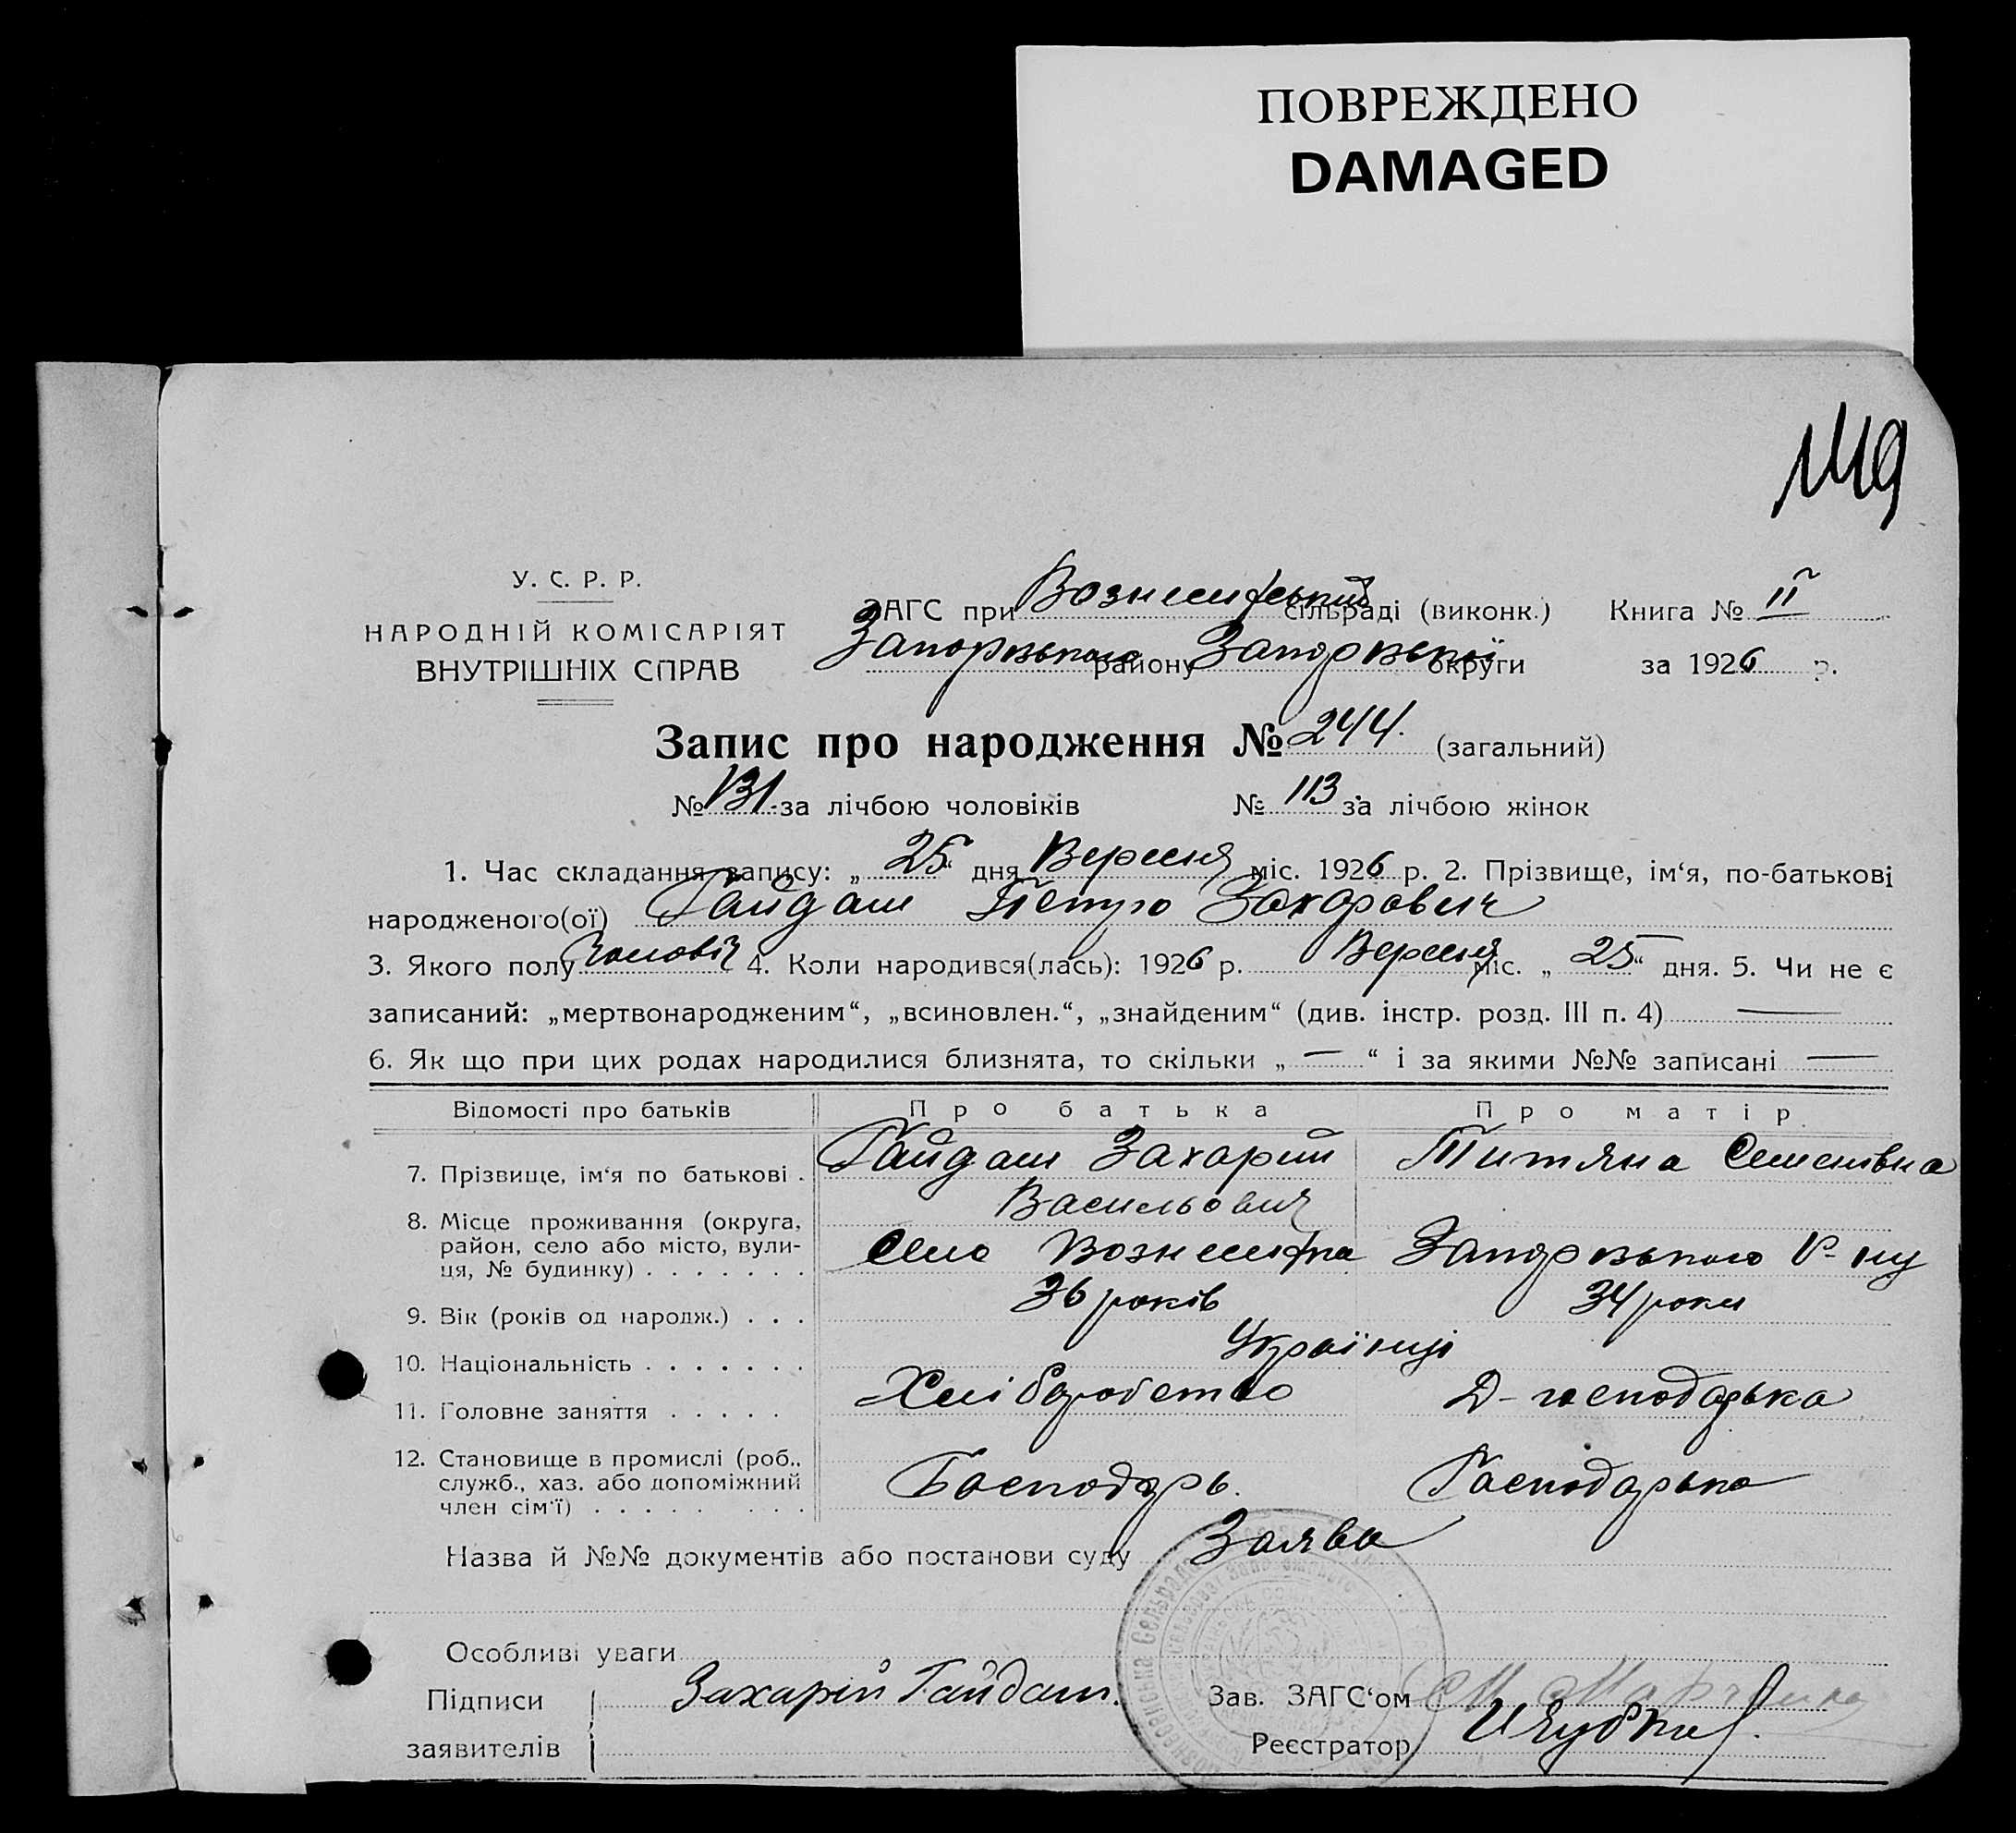 ПОВРЕЖДЕНО
DAMAGED
1119
У. С. Р. Р.
НАРОДНІЙ КОМІСАРІЯТ
ВНУТРІШНІХ СПРАВ
ЗАГС при Вознесенський сільраді (виконк.) Книга № II
Запорізького району Запорізької округи за 1926 р.
Запис про народження № 244. (загальний)
№ 131. за лічбою чоловіків № 113 за лічбою жінок
1. Час складання запису: „ 25 “ дня Вересня міс. 1926 р. 2. Прізвище, ім‘я, по-батькові
народженого(ої) Гайдаш Петро Захарович
3. Якого полу чоловіч 4. Коли народився(лась): 1926 р. Вересня міс. „ 25 “ дня. 5. Чи не є
записаний: „мертвонародженим“, „всиновлен.“, „знайденим“ (див. інстр. розд. III п. 4) —
6. Як що при цих родах народилися близнята, то скільки „ — “ і за якими №№ записані —
Відомості про батьків Про батька Про матір
7. Прізвище, ім‘я по батькові . Гайдаш Захарий Васильович Титяна Семенівна
8. Місце проживання (округа,
район, село або місто, вули-
ця, № будинку) . . . . . . . Село Вознесенка Запорізького Р-ну
9. Вік (років од народж.) . . . 36 років 34 роки
10. Національність . . . . . . . Українці
11. Головне заняття . . . . . Хліборобство Д-господарька
12. Становище в промислі (роб.,
служб., хаз. або допоміжний
член сім‘ї) . . . . . . . . Господарь. Господарька
Назва й №№ документів або постанови суду Заява
Особливі уваги
Підписи Захарій Гайдаш. Зав. ЗАГС‘ом
заявителів Реєстратор